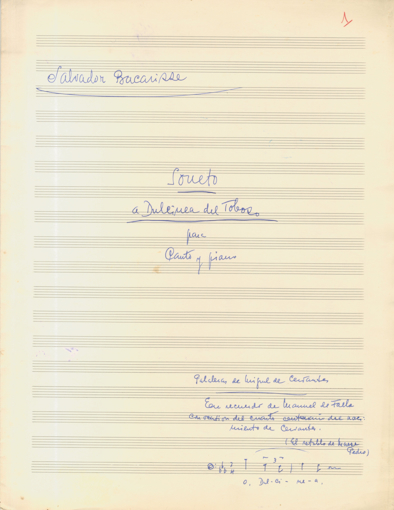 1
Salvador Bacarisse
Soneto
a Dulcinea del Toboso
para
Canto y piano
Palabras de Miguel de Cervantes
Con recuerdo de Manuel de Falla
con ocasión del cuarto centenario del naci-
miento de Cervantes.
(El retablo de Maese
Pedro)
o, Dul-ci-ne-a.